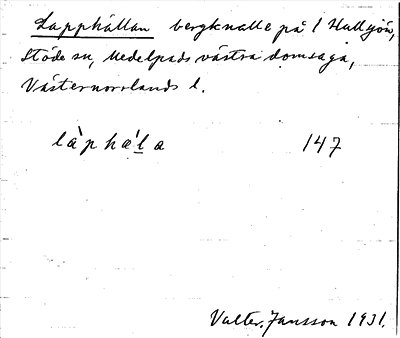 Lapphällan bergknalle på l Hallsjön,
Stöde sn, Medelpads västra domsaga,
Västernorrlands l.
là̀phæ̀la 147
Valter. Jansson 1931.